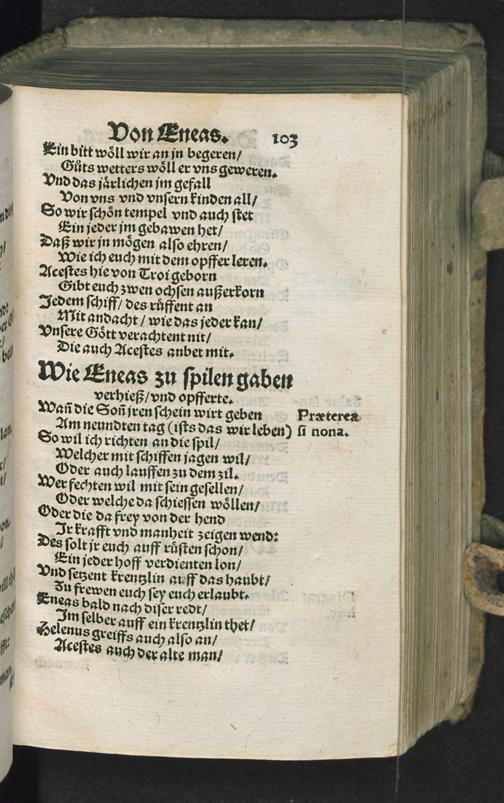 Von Eneas. 103
Ein bitt wöll wir an jn begeren/
Güts wetters wöll er vns geweren.
Vnd das järlichen jm gefall
Von vns vnd vnsern kinden all/
So wir schön tempel vnd auch stet
Ein jeder jm gebawen het/
Daß wir jn mögen also ehren/
Wie ich euch mit dem opffer leren.
Acestes hie von Troi geborn
Gibt euch zwen ochsen außerkorn
Jedem schiff/ des rüffent an
Mit andacht/ wie das jeder kan/
Vnsere Gött verachtent nit/
Die auch Acestes anbet mit.
Wie Eneas zu spilen gaben
verhieß/vnd opfferte.
Wañ die Soñ jren schein wirt geben Præterea
Am neundten tag (ists das wir leben) si nona.
So wil ich richten an die spil/
Welcher mit schiffen jagen wil/
Oder auch lauffen zu dem zil.
Wer fechten wil mit sein gesellen/
Oder welche da schiessen wöllen/
Oder die da frey von der hend
Jr krafft vnd manheit zeigen wend:
Des solt jr euch auff rüsten schon/
Ein jeder hoff verdienten lon/
Vnd setzent krentzlin auff das haubt/
Zu frewen euch sey euch erlaubt.
Eneas bald nach diser redt/
Jm selber auff ein krentzlin thet/
Helenus greiffs auch also an/
Acestes auch der alte man/